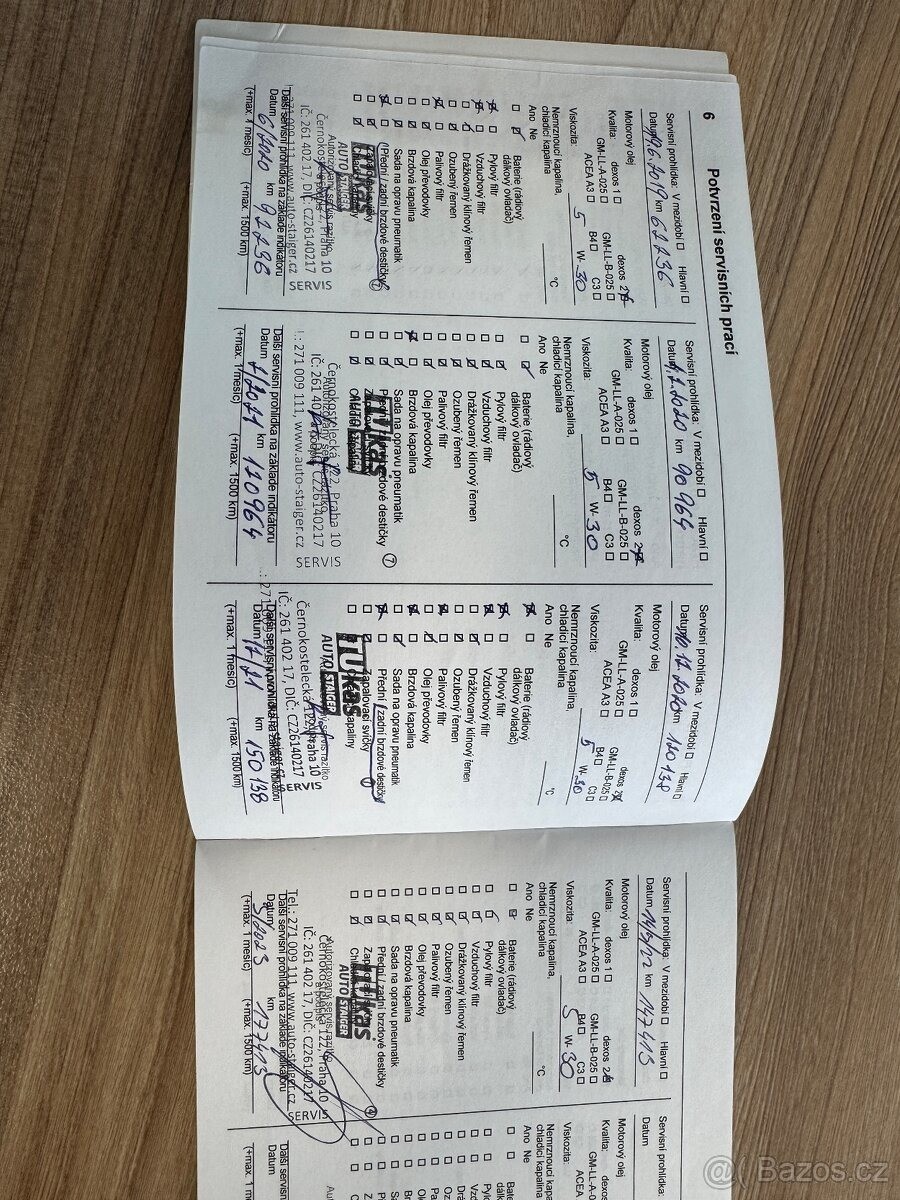 6
Potvrzení servisních prací
Servisní prohlídka: V mezidobí ☐ Hlavní ☐
Motorový olej
Kvalita: dexos 1 ☐ dexos 2
GM-LL-A-025 ☐ GM-LL-B-025 ☐
ACEA A3 ☐ B4 ☐ C3 ☐
Viskozita: 5 W- 30
Nemrznoucí kapalina,
chladicí kapalina °C
Ano Ne
Baterie (rádiový
dálkový ovladač)
Pylový filtr
Vzduchový filtr
Drážkovaný klínový řemen
Ozubený řemen
Palivový filtr
Olej převodovky
Brzdová kapalina
Sada na opravu pneumatik
Přední / zadní brzdové destičky
TUkas
AUTO STAIGER
Autorizovaný servis razítko
Černokostelecká 122, Praha 10
IČ: 261 402 17, DIČ: CZ26140217
271 009 111, www.auto-staiger.cz
SERVIS
Další servisní prohlídka na základě indikátoru
Datum 6/2020 km 92236
(+max. 1 měsíc) (+max. 1500 km)
Servisní prohlídka: V mezidobí ☐ Hlavní ☐
Datum km 90 964
Motorový olej
Kvalita: dexos 1 ☐ dexos 2
GM-LL-A-025 ☐ GM-LL-B-025 ☐
ACEA A3 ☐ B4 ☐ C3 ☐
Viskozita: 5 W- 30
Nemrznoucí kapalina,
chladicí kapalina °C
Ano Ne
Baterie (rádiový
dálkový ovladač)
Pylový filtr
Vzduchový filtr
Drážkovaný klínový řemen
Ozubený řemen
Palivový filtr
Olej převodovky
Brzdová kapalina
Sada na opravu pneumatik
TUkas
AUTO STAIGER
Černokostelecká 122, Praha 10
IČ: 261 402 17, DIČ: CZ26140217
: 271 009 111, www.auto-staiger.cz
SERVIS
Další servisní prohlídka na základě indikátoru
Datum km 120964
(+max. 1 měsíc) (+max. 1500 km)
Servisní prohlídka: V mezidobí ☐ Hlavní ☐
Datum km 120138
Motorový olej
Kvalita: dexos 1 ☐ dexos 2
GM-LL-A-025 ☐ GM-LL-B-025 ☐
ACEA A3 ☐ B4 ☐ C3 ☐
Viskozita: 5 W- 30
Nemrznoucí kapalina,
chladicí kapalina °C
Ano Ne
Baterie (rádiový
dálkový ovladač)
Pylový filtr
Vzduchový filtr
Drážkovaný klínový řemen
Ozubený řemen
Palivový filtr
Olej převodovky
Brzdová kapalina
Sada na opravu pneumatik
Přední / zadní brzdové destičky
Zapalovací svíčky
TUkas
AUTO STAIGER
Černokostelecká 122, Praha 10
IČ: 261 402 17, DIČ: CZ26140217
SERVIS
Další servisní prohlídka na základě indikátoru
Datum 12/21 km 150 138
(+max. 1 měsíc) (+max. 1500 km)
Servisní prohlídka: V mezidobí ☐ Hlavní ☐
Datum 14/5/22 km 147413
Motorový olej
Kvalita: dexos 1 ☐ dexos 2
GM-LL-A-025 ☐ GM-LL-B-025 ☐
ACEA A3 ☐ B4 ☐ C3 ☐
Viskozita: 5 W- 30
Nemrznoucí kapalina,
chladicí kapalina °C
Ano Ne
Baterie (rádiový
dálkový ovladač)
Pylový filtr
Vzduchový filtr
Drážkovaný klínový řemen
Ozubený řemen
Palivový filtr
Olej převodovky
Brzdová kapalina
Sada na opravu pneumatik
Přední / zadní brzdové destičky
TUkas
AUTO STAIGER
Autorizovaný servis razítko
Černokostelecká 122, Praha 10
IČ: 261 402 17, DIČ: CZ26140217
Tel.: 271 009 111, www.auto-staiger.cz
SERVIS
Další servisní prohlídka na základě indikátoru
Datum 5/2023 km 177413
(+max. 1 měsíc) (+max. 1500 km)
Servisní prohlídka:
Datum
Motorový olej
Kvalita:
GM-LL-A
ACEA
Viskozita:
Nemrznoucí kapalina,
chladicí kapalina
Ano Ne
Bazos.cz